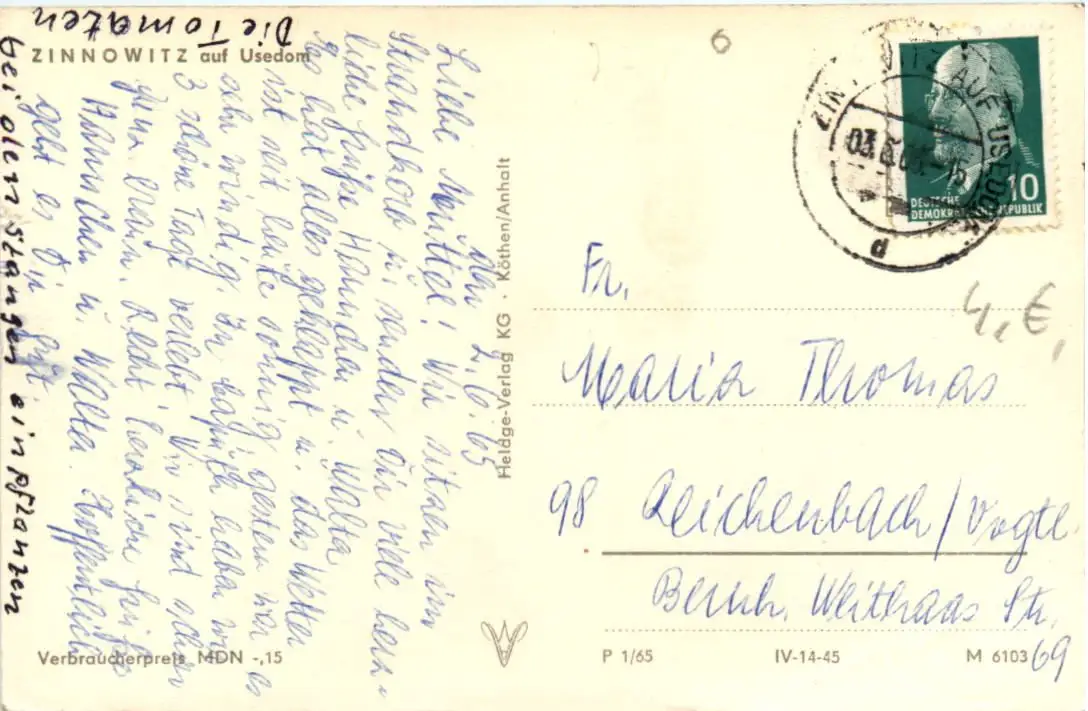 ZINNOWITZ auf Usedom
Den 2.6.65
Liebe Muttel! Wir sitzen im
Strandkorb u. senden Dir viele herz-
liche Grüße Hannchen u. Walta
Es hat alles geklappt u. das Wetter
ist seit heute sonnig, gestern war es
sehr windig. In haben wir
3 schöne Tage verlebt. Wir sind schon
ganz braun. Recht herzliche Grüße
Hannchen u. Walta. Hoffentlich
geht es Dir gut.
Die Tomaten
bei den Stangen einpflanzen
Verbraucherpreis MDN -,15
Heldge-Verlag KG · Köthen/Anhalt
6
ZINNOWITZ AUF USEDOM
03.6.65.-15
d
10
DEUTSCHE
DEMOKRATISCHE REPUBLIK
4,€,
Fr.
Maria Thomas
98 Reichenbach/Vogtl.
Bernh. Weithaas Str.
69
P 1/65
IV-14-45
M 6103